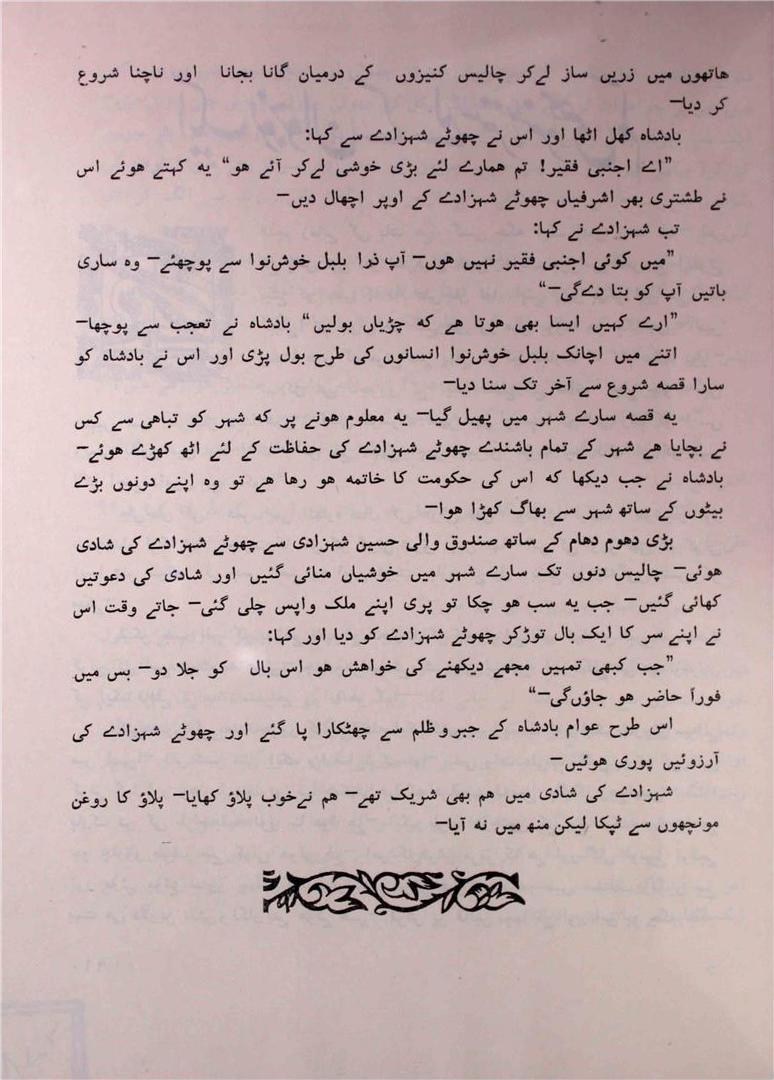 ھاتھوں میں زریں ساز لےکر چالیس کنیزوں کے درمیان گانا بجانا اور ناچنا شروع
کر دیا—
بادشاہ کھل اٹھا اور اس نے چھوٹے شہزادے سے کہا:
”اے اجنبی فقیر! تم ہمارے لئے بڑی خوشی لےکر آئے ھو“ یہ کہتے ھوئے اس
نے طشتری بھر اشرفیاں چھوٹے شہزادے کے اوپر اچھال دیں—
تب شہزادے نے کہا:
”میں کوئی اجنبی فقیر نہیں ھوں— آپ ذرا بلبل خوش‌نوا سے پوچھئے— وہ ساری
باتیں آپ کو بتا دےگی—“
”ارے کہیں ایسا بھی ھوتا ھے کہ چڑیاں بولیں“ بادشاہ نے تعجب سے پوچھا—
اتنے میں اچانک بلبل خوش‌نوا انسانوں کی طرح بول پڑی اور اس نے بادشاہ کو
سارا قصہ شروع سے آخر تک سنا دیا—
یہ قصہ سارے شہر میں پھیل گیا— یہ معلوم ھونے پر کہ شہر کو تباھی سے کس
نے بچایا ھے شہر کے تمام باشندے چھوٹے شہزادے کی حفاظت کے لئے اٹھ کھڑے ھوئے—
بادشاہ نے جب دیکھا کہ اس کی حکومت کا خاتمہ ھو رھا ھے تو وہ اپنے دونوں بڑے
بیٹوں کے ساتھ شہر سے بھاگ کھڑا ھوا—
بڑی دھوم دھام کے ساتھ صندوق والی حسین شہزادی سے چھوٹے شہزادے کی شادی
ھوئی— چالیس دنوں تک سارے شہر میں خوشیاں منائی گئیں اور شادی کی دعوتیں
کھائی گئیں— جب یہ سب ھو چکا تو پری اپنے ملک واپس چلی گئی— جاتے وقت اس
نے اپنے سر کا ایک بال توڑکر چھوٹے شہزادے کو دیا اور کہا:
”جب کبھی تمہیں مجھے دیکھنے کی خواھش ھو اس بال کو جلا دو— بس میں
فوراً حاضر ھو جاؤں‌گی—“
اس طرح عوام بادشاہ کے جبر و ظلم سے چھٹکارا پا گئے اور چھوٹے شہزادے کی
آرزوئیں پوری ھوئیں—
شہزادے کی شادی میں ھم بھی شریک تھے— ھم نےخوب پلاؤ کھایا— پلاؤ کا روغن
مونچھوں سے ٹپکا لیکن منھ میں نہ آیا—